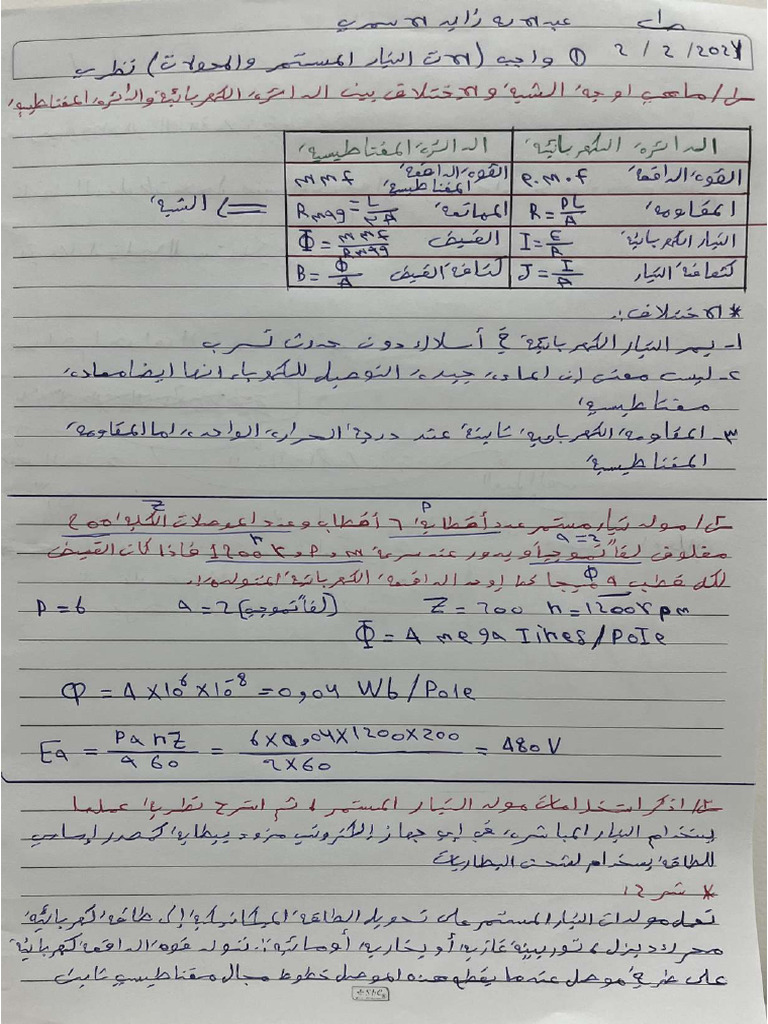 2/2/2021
① واجب (آلات التيار المستمر والمحولات) نظري
س1/ ماهي اوجه الشبه والاختلاف بين الدائرة الكهربائية والدائرة المغناطيسية
الدائرة الكهربائية الدائرة المغناطيسية
القوة الدافعة e.m.f القوة الدافعة المغناطيسية m m f
المقاومة R = ρL/A الممانعة
التيار الكهربائية I = الفيض Φ = mmf/Rmag
كثافة التيار J = I/A كثافة الفيض B = Φ/A
<= الشبه
* الاختلاف :.
1- يمر التيار الكهربائية في أسلاك دون حدوث تسرب
2- ليست معنى ان المادة جيدة التوصيل للكهرباء انها ايضا معادة
مغناطيسية
3- المقاومة الكهربائية ثابتة عند درجة الحرارة الواحدة اما المقاومة
المغناطيسية
س2/ مولد تيار مستمر عدد أقطابه P 6 أقطاب وعدد الموصلات الكلية Z 200
ملفوف لفاً تموجياً a = 2 ويدور عند سرعة n 1200 r.p.m فاذا كان الفيض
لكل قطب Φ
P = 6 a = 2 (لفاً تموجي) Z = 200 n = 1200 r pm
Φ = 4 mega lines/Pole
φ = 4 × 10⁶ × 10⁻⁸ = 0,04 Wb/Pole
Ea = P φ n Z / a 60 = 6 × 0,04 × 1200 × 200 / 2 × 60 = 480 V
س3/ اذكر استخدامات مولد التيار المستمر، ثم اشرح نظرية عملها
يستخدام التيار المباشر، في أي جهاز إلكتروني مزود ببطارية كمصدر اساسي
للطاقة يستخدام لشحن البطاريات
تعمل مولدات التيار المستمر على تحويل الطاقة الميكانيكية إلى طاقة كهربائية
محرك ديزل، توربينة غازية أو بخارية أو مائية :. تتولد قوة الدافعة كهربائية
على طرفي موصل عندما يقطع هذه الموصل خطوط مجال مغناطيسي ثابت